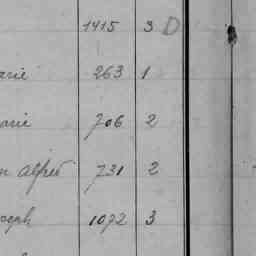 1415 3 D
arie 263 1
arie 706 2
n Alfred 731 2
oseph 1072 3